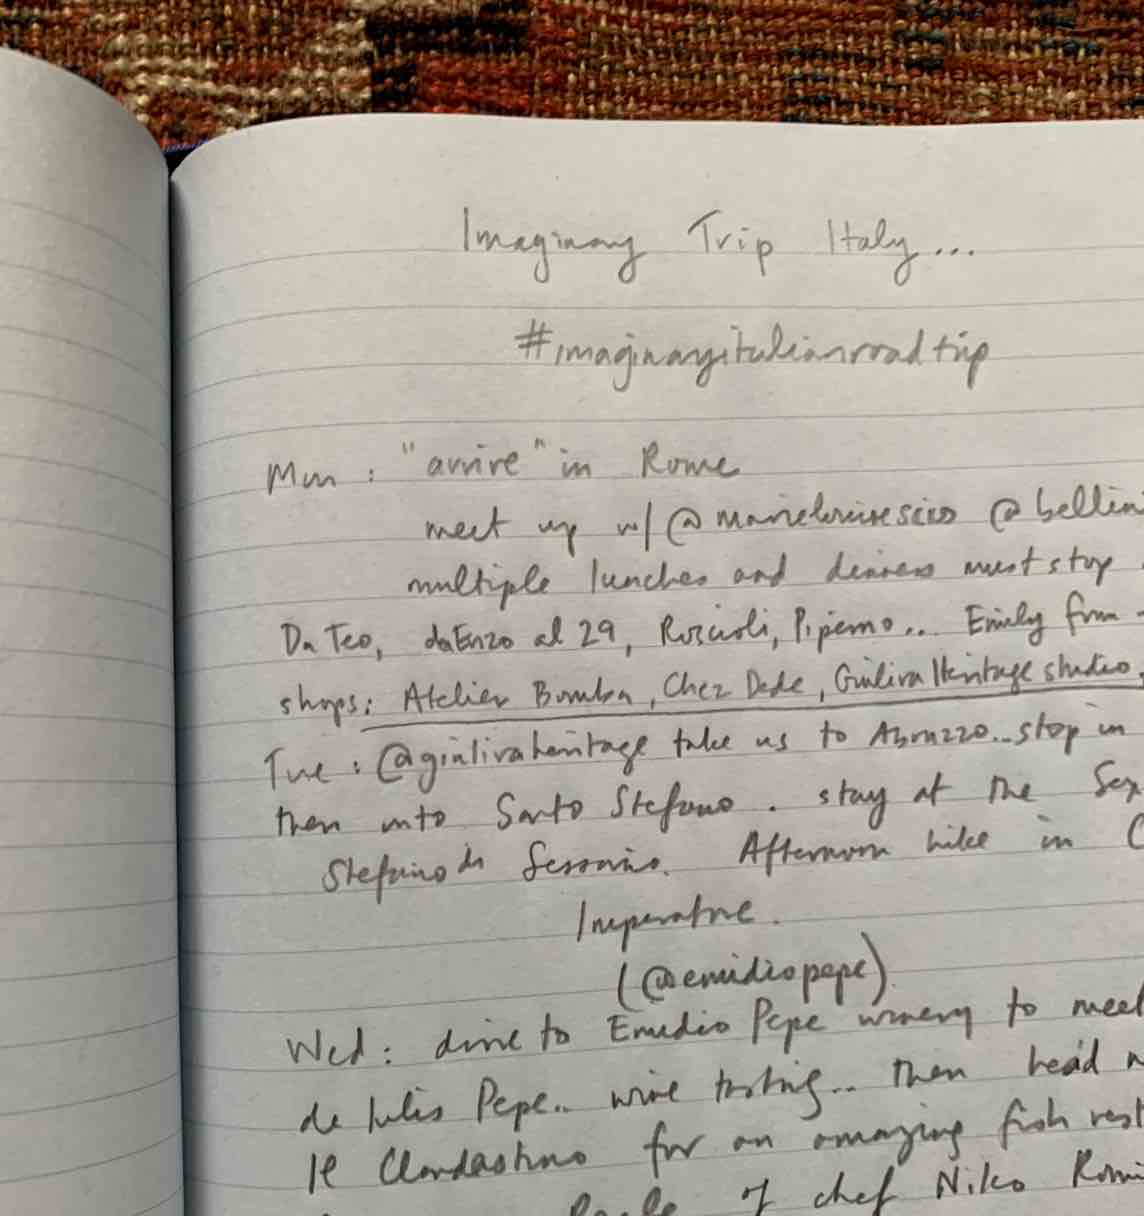 Imaginary Trip Italy...
#imaginaryitalianroadtrip
Mon : "arrive" in Rome
meet up w/ @marielouisescio @bellin
multiple lunches and dinners must stop
Da Teo, da Enzo al 29, Roscioli, Piperno.. Emily from
shops: Atelier Bomba, Chez Dede, Giuliva Heritage studio,
Tue : @giulivaheritage take us to Abruzzo.. stop in
then into Santo Stefano. stay at the Sex
Stefano di Sessanio. Afternoon hike in C
Imperatore.
(@emidiopepe)
Wed : drive to Emidio Pepe winery to meet
de Iulis Pepe.. wine tasting.. then head
Il Clandestino for an amazing fish rest
of chef Niko Romi